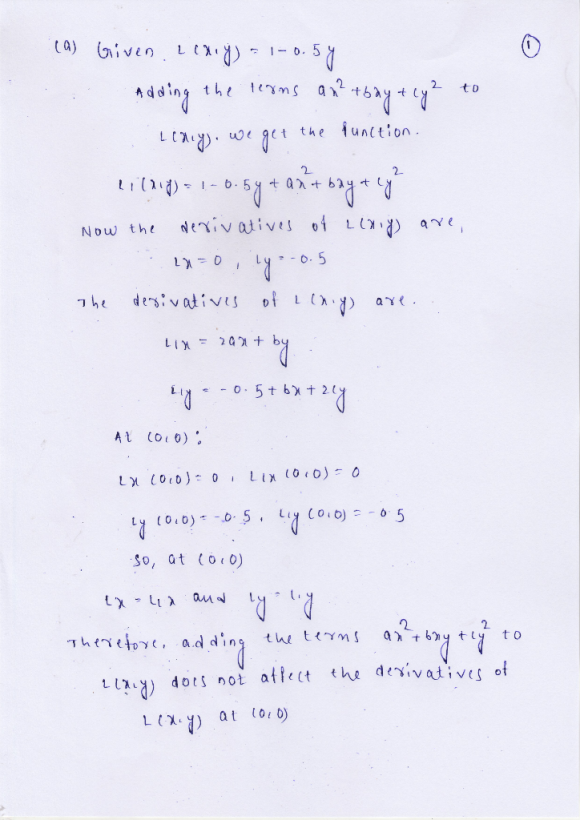 (a) Given L(x,y) = 1-0.5y
①
Adding the terms ax²+bxy+cy² to
L(x,y). we get the function.
L1(x,y) = 1-0.5y+ax²+bxy+cy²
Now the derivatives of L(x,y) are,
Lx=0, Ly=-0.5
The derivatives of L(x,y) are.
L1x = 2ax+by
L1y = -0.5+bx+2cy
At (0,0):
Lx (0,0)=0, L1x (0,0)=0
Ly (0,0)=-0.5, L1y (0,0)=-0.5
So, at (0,0)
Lx = L1x and Ly = L1y
Therefore, adding the terms ax²+bxy+cy² to
L(x,y) does not affect the derivatives of
L(x,y) at (0,0)